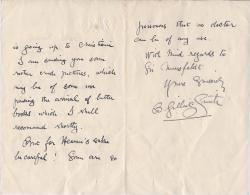 is going up to
I am sending you some
rather crude pictures, which
may be of some use
pending the arrival of better
books which I shall
recommend shortly.
But for Heaven's sake
be careful! Some are so
poisonous that no doctor
can be of any use.
With kind regards to
Yours sincerely